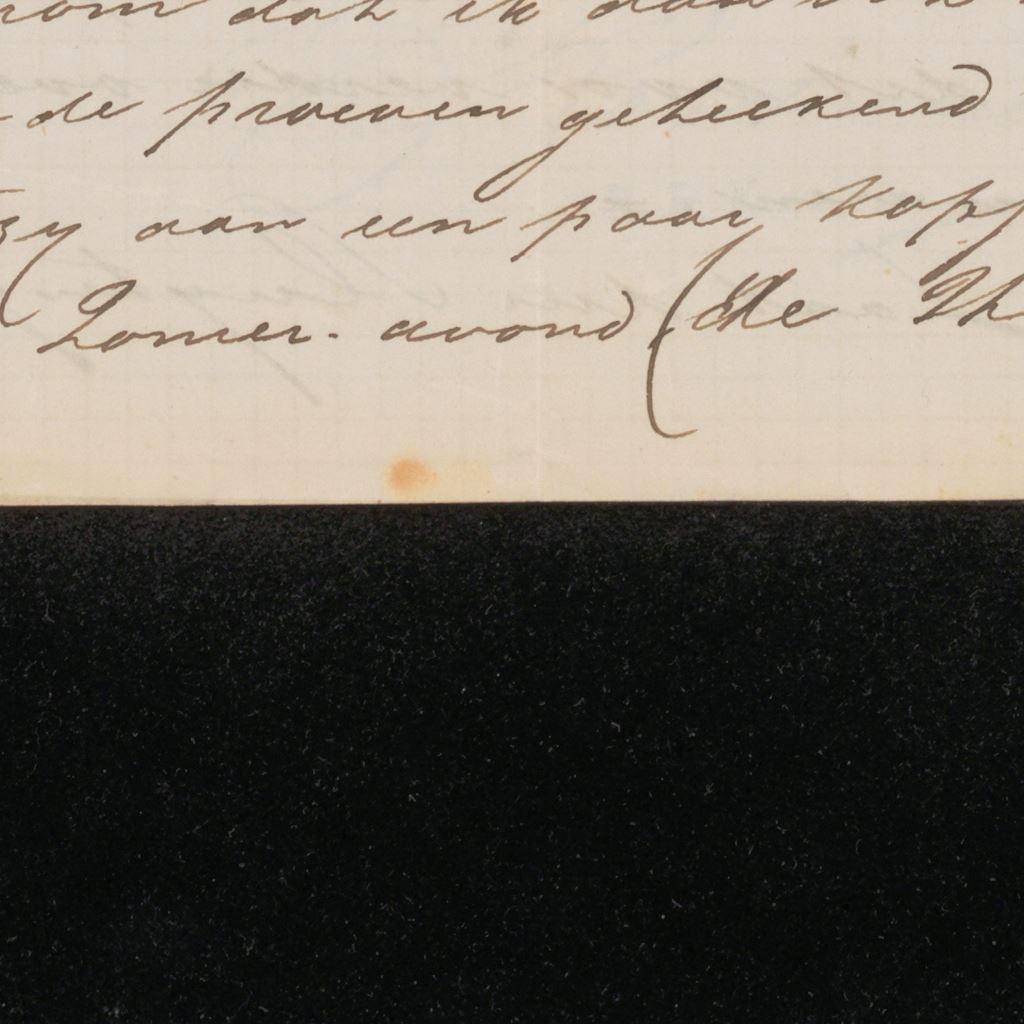 dat ik dan
de proeven geteekend
zy aan een paar
Zomer-avond (de Th